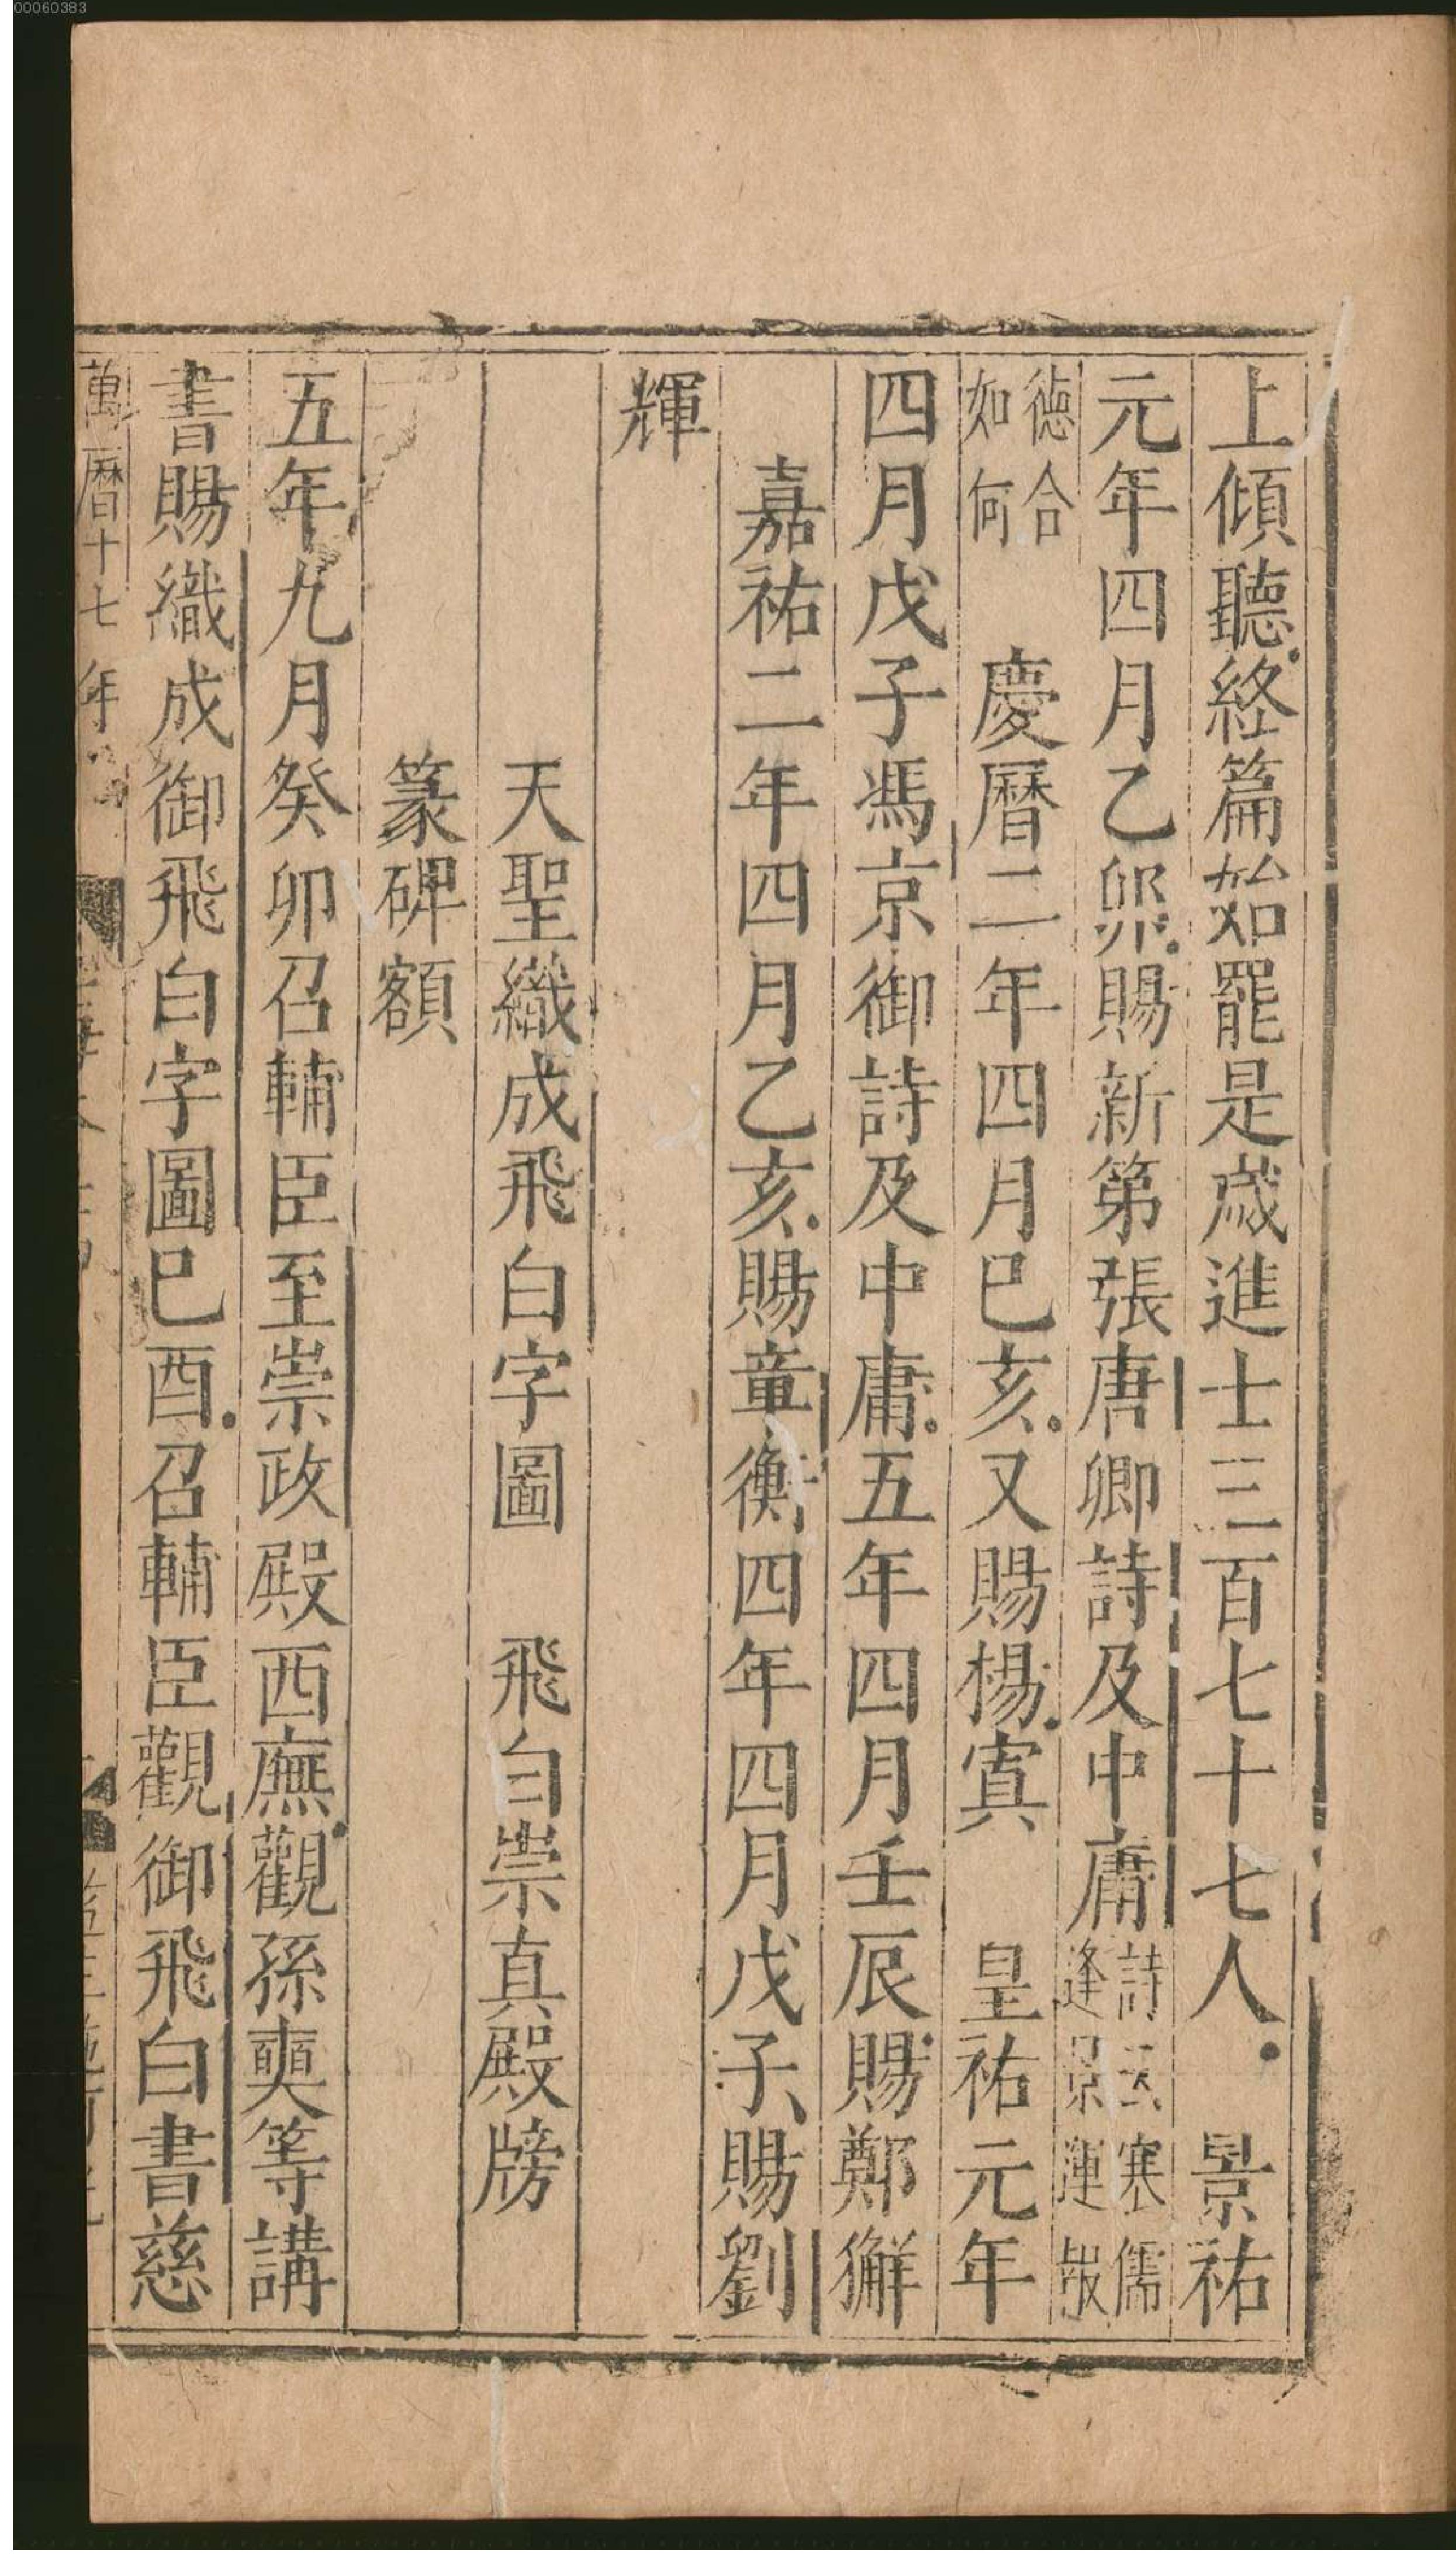 00060383
上傾聽終篇始罷是歲進士三百七十七人 景祐
元年四月乙卯賜新第張唐卿詩及中庸詩云寒儒逢景運報
德合如何 慶曆二年四月巳亥又賜楊寘 皇祐元年
四月戊子馮京御詩及中庸五年四月壬辰賜鄭獬
嘉祐二年四月乙亥賜章衡四年四月戊子賜劉
輝
天聖織成飛白字圖 飛白崇真殿牓
篆碑額
五年九月癸卯召輔臣至崇政殿西廡觀孫奭等講
書賜織成御飛白字圖巳酉召輔臣觀御飛白書慈
萬曆十七年